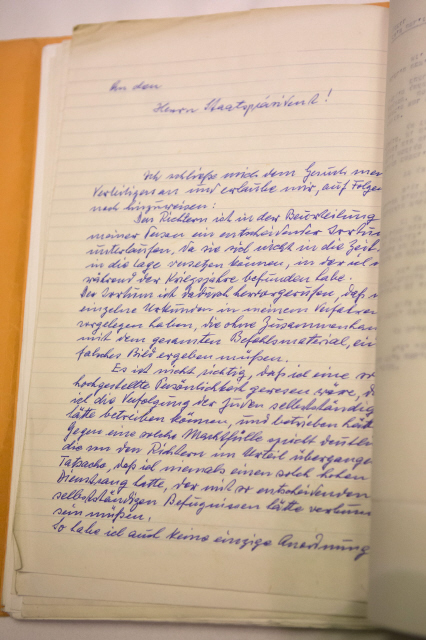 An den
Herrn Staatspräsident!
Ich schließe mich dem Gesuch mei
Verteidigers an und erlaube mir, auf Folgen
noch hinzuweisen:
Den Richtern ist in der Beurteilung
meiner Person ein entscheidender Irrtum
unterlaufen, da sie sich nicht in die Zeit
in die Lage versetzen können, in der ich m
während der Kriegsjahre befunden habe.
Der Irrtum ist dadurch hervorgerufen, daß m
einzelne Urkunden in meinem Verfahren
vorgelegen haben, die ohne Zusammenhan
mit dem gesamten Befehlsmaterial, ein
falsches Bild ergeben müßen.
Es ist nicht richtig, daß ich eine so
hochgestellte Persönlichkeit gewesen wäre, d
ich die Verfolgung der Juden selbstständig
hätte betreiben können, und betrieben hätt
Gegen eine solche Machtfülle spricht deutlic
die von den Richtern im Urteil übergange
Tatsache, daß ich niemals einen solch hohen
Dienstrang hatte, der mit so entscheidenden
selbstständigen Befugnissen hätte verbun
sein müßen.
So habe ich auch keine einzige Anordnung